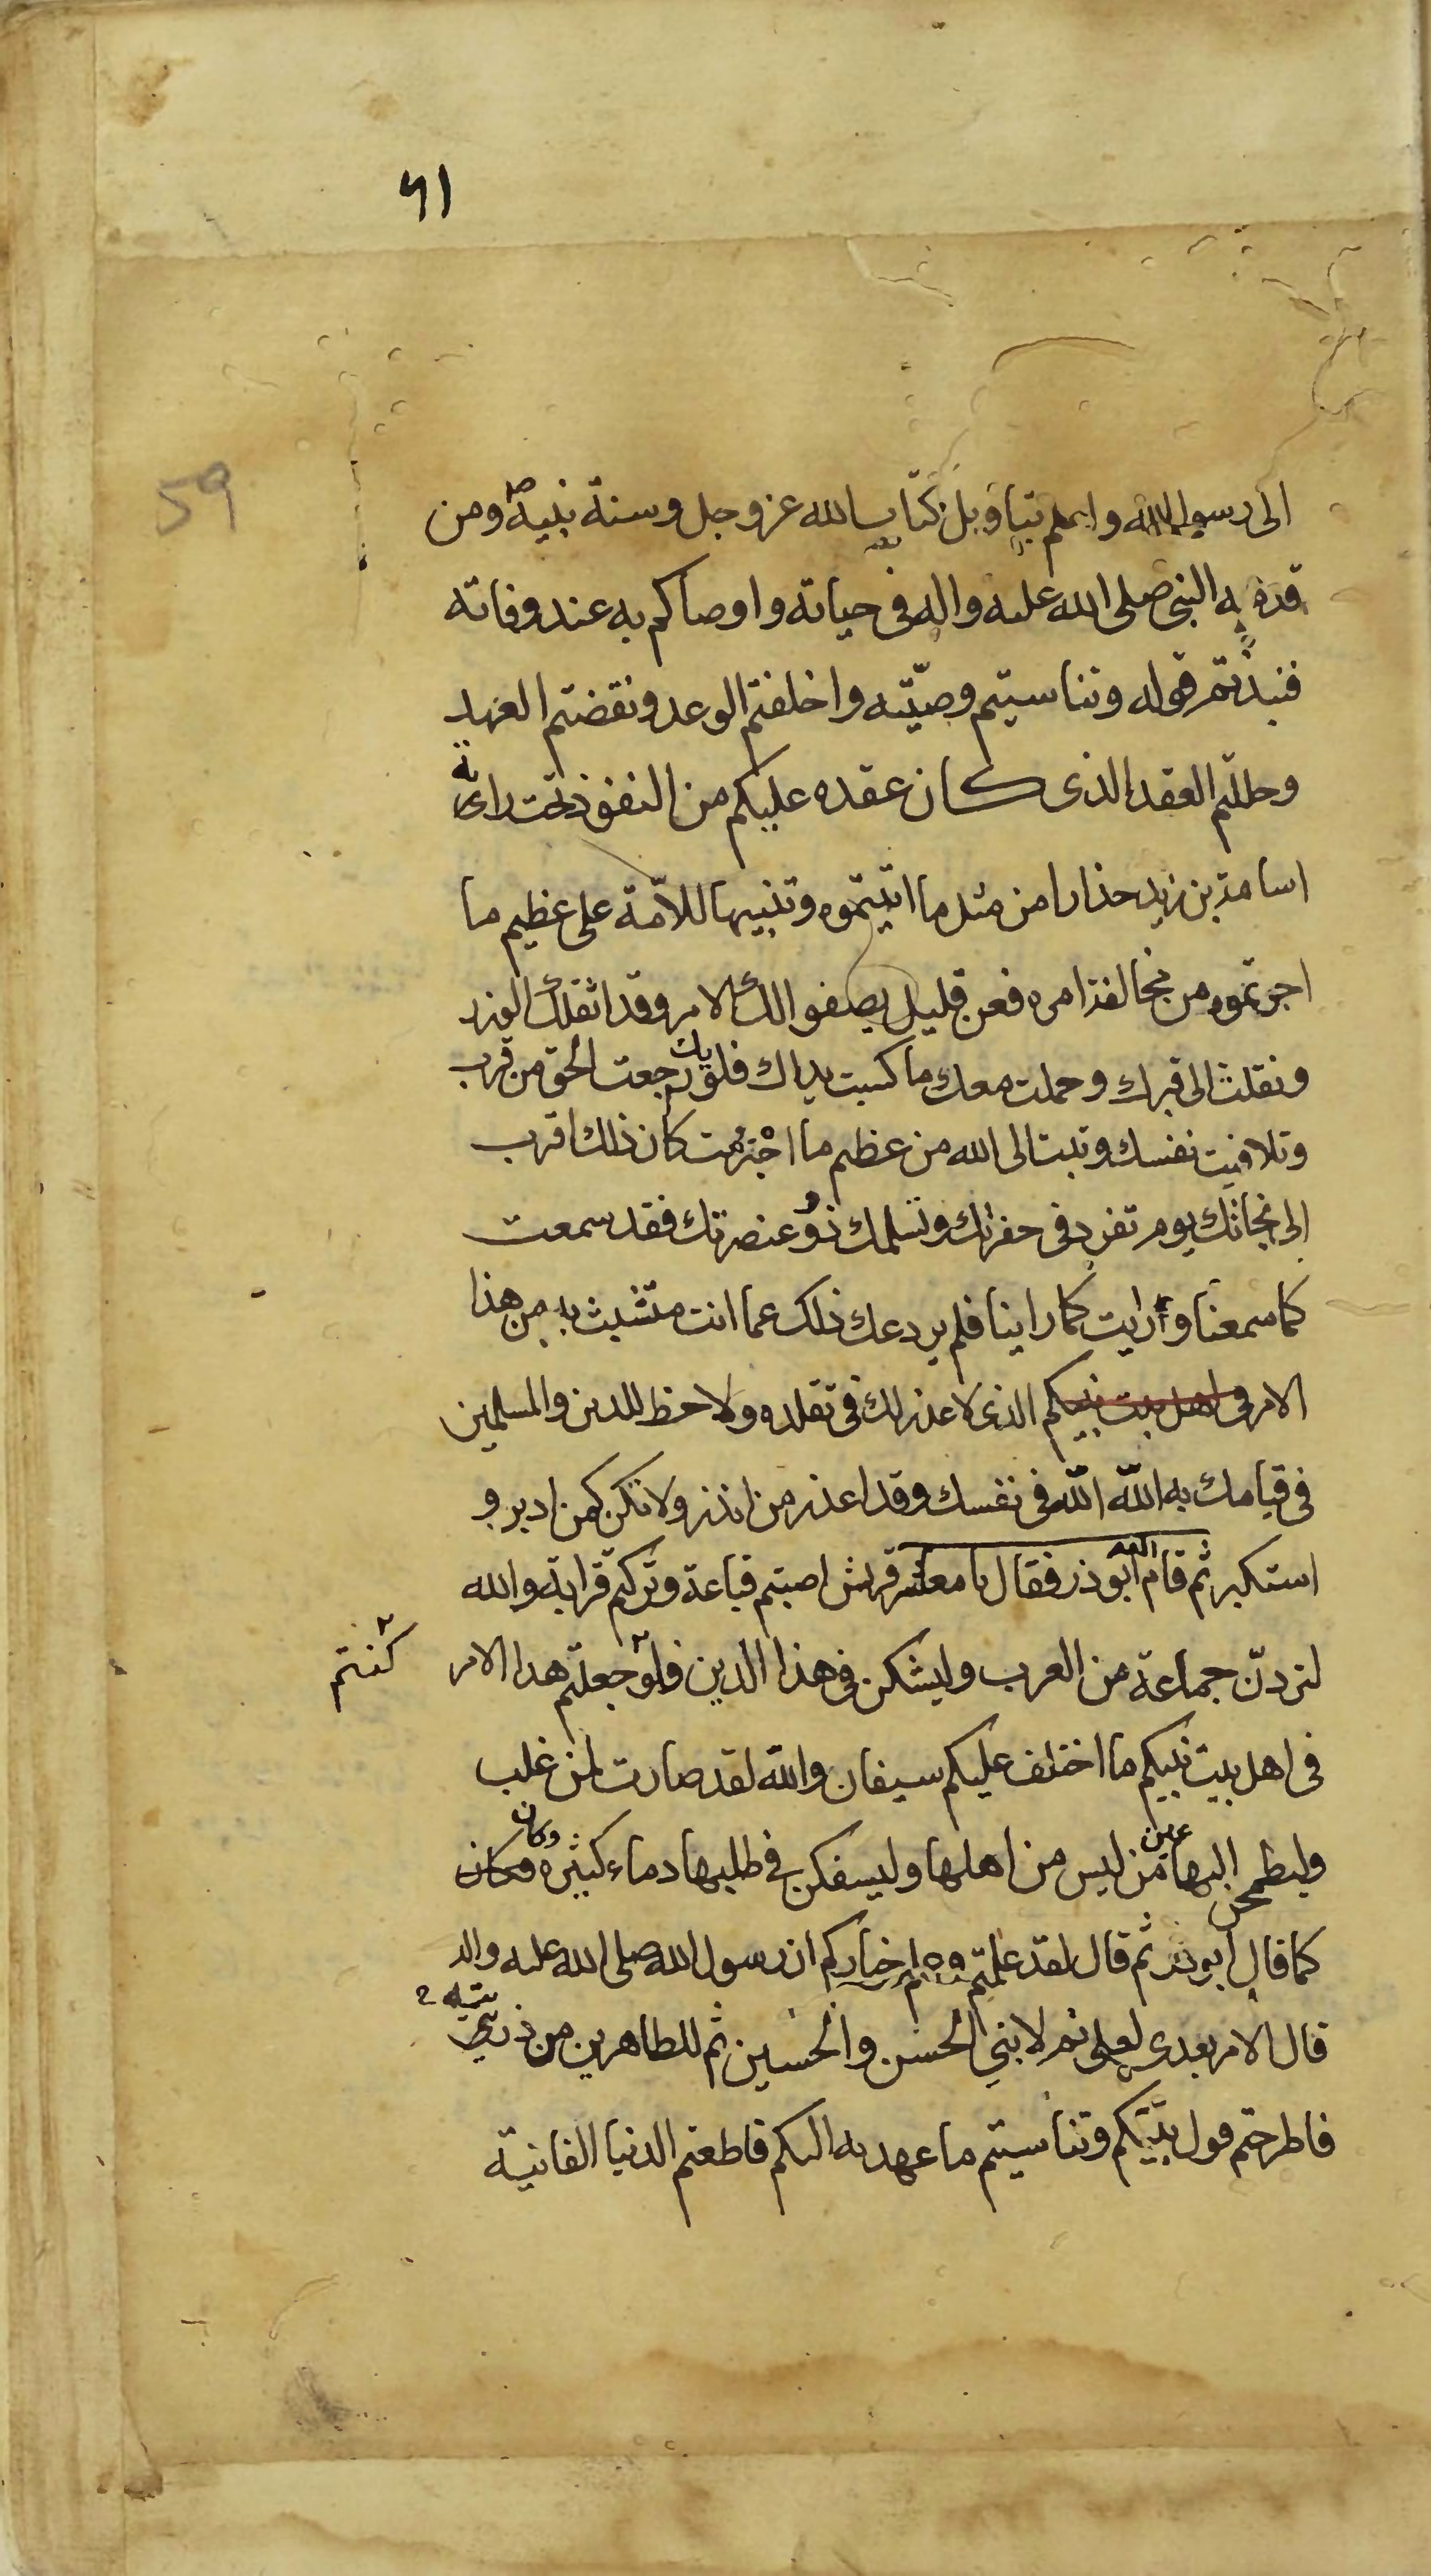 ٦١
59
الى رسول الله واعلم بتاويل كتاب الله عز وجل وسنة نبيه ص ومن
قدمه النبي صلى الله عليه واله فى حياته واوصاكم به عند وفاته
فنبذتم قوله وتناسيتم وصيّته واخلفتم الوعد ونقضتم العهد
وحللتم العقد الذى كان عقده عليكم من النفوذ تحت راية
اسامة بن زيد حذارا من مثل ما اتيتموه وتنبيها للامّة على عظيم ما
اجرتموه من مخالفة امره فعن قليل يصفوا لك الامر وقد اثقلك الوزر
ونقلت الى قبرك وحملت معك ما كسبت يداك فلو رجعت الحق من قرب
وتلافيت نفسك وتبت الى الله من عظيم ما اجترمت كان ذلك اقرب
الى نجاتك يوم تفرد فى حفرتك وتسلمك ذو عنصرتك فقد سمعت
كما سمعنا ورايت كما راينا فلم يردعك ذلك عما انت متشبث به من هذا
الامر فى اهل بيت نبيكم الذى لا عذر لك فى تقلده ولا حظ للدين والمسلمين
فى قيامك به الله الله فى نفسك وقد اعذر من انذر ولا تكن كمن ادبر و
استكبر ثم قام ابو ذر فقال يا معشر قريش اصبتم قباعة وتركتم قرابة والله
لتردنّ جماعة من العرب وليشكن فى هذا الدين فلو جعلتم هذا الامر
كنتم
فى اهل بيت نبيكم ما اختلف عليكم سيفان والله لقد صارت لمن غلب
وليطمحن اليها عين من ليس من اهلها وليسفكن فى طلبها دماء كثيره وكان
كما قال ابو ذر ثم قال لقد علمتم وعلم خياركم ان رسول الله صلى الله عليه واله
قال الامر بعدى لعلى ثم لابني الحسن والحسين ثم للطاهرين من ذريتي
فاطرحتم قول نبيّكم وتناسيتم ما عهد به اليكم فاطعتم الدنيا الفانية